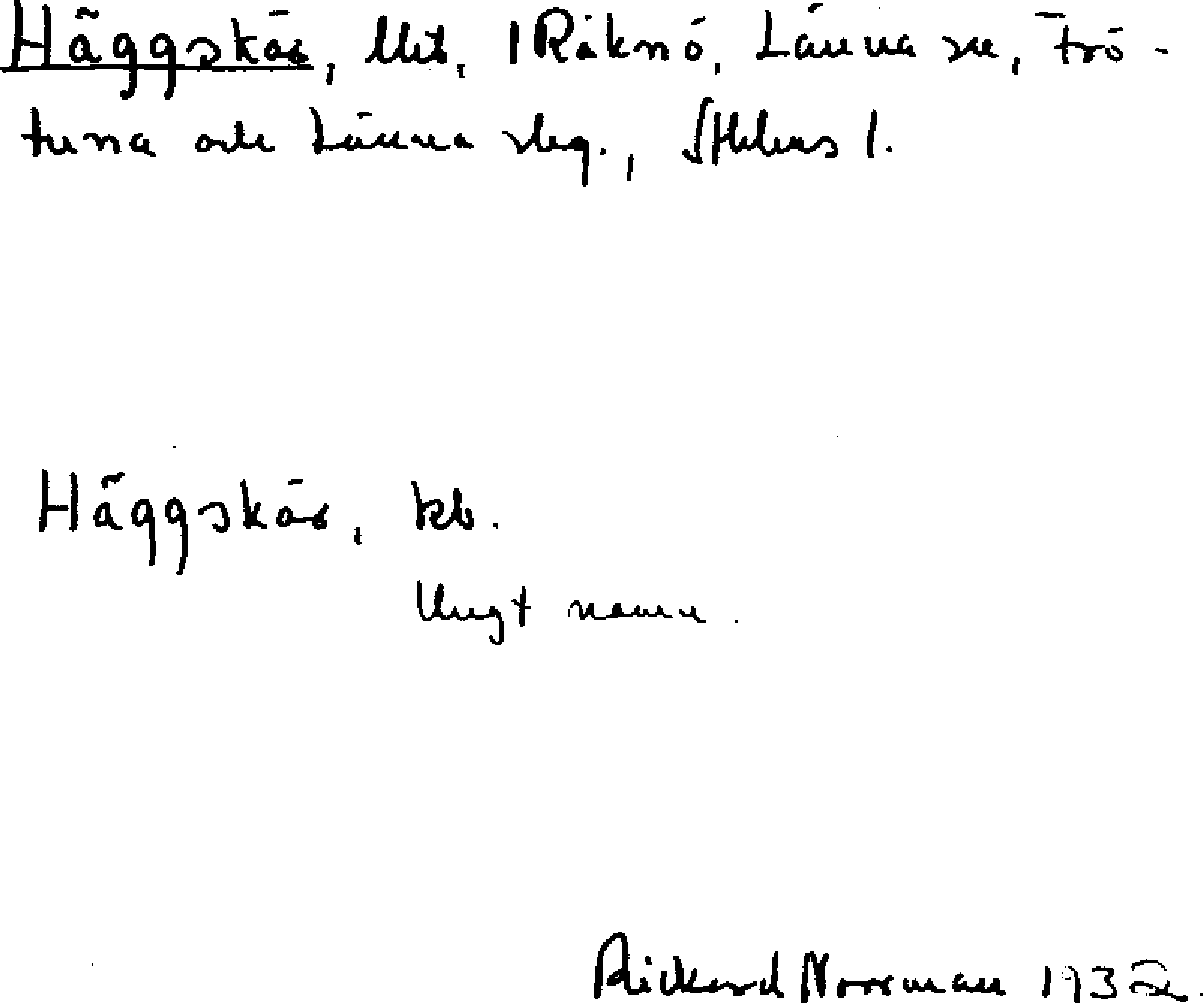 Häggskär, lht, 1 Räknö, Länna sn, Frö-
tuna och Länna slg., Sthlms l.
Häggskär, kb.
Ungt namn.
Rickard Norrman 1932